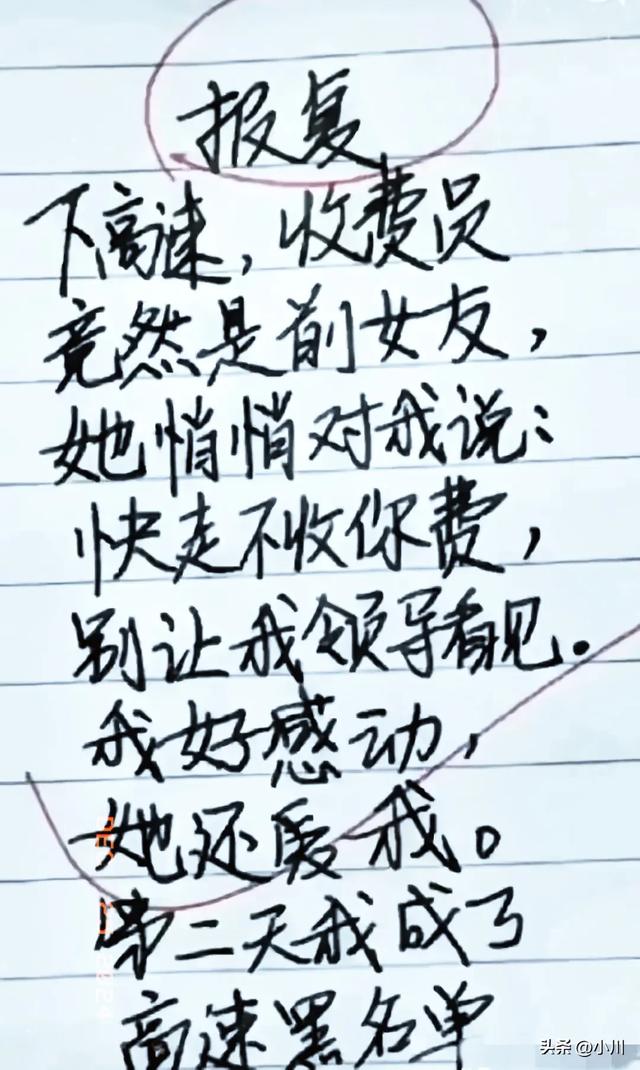 报复
下高速，收费员
竟然是前女友，
她悄悄对我说：
快走不收你费，
别让我领导看见。
我好感动，
她还爱我。
第二天我成了
高速黑名单
头条 @小川